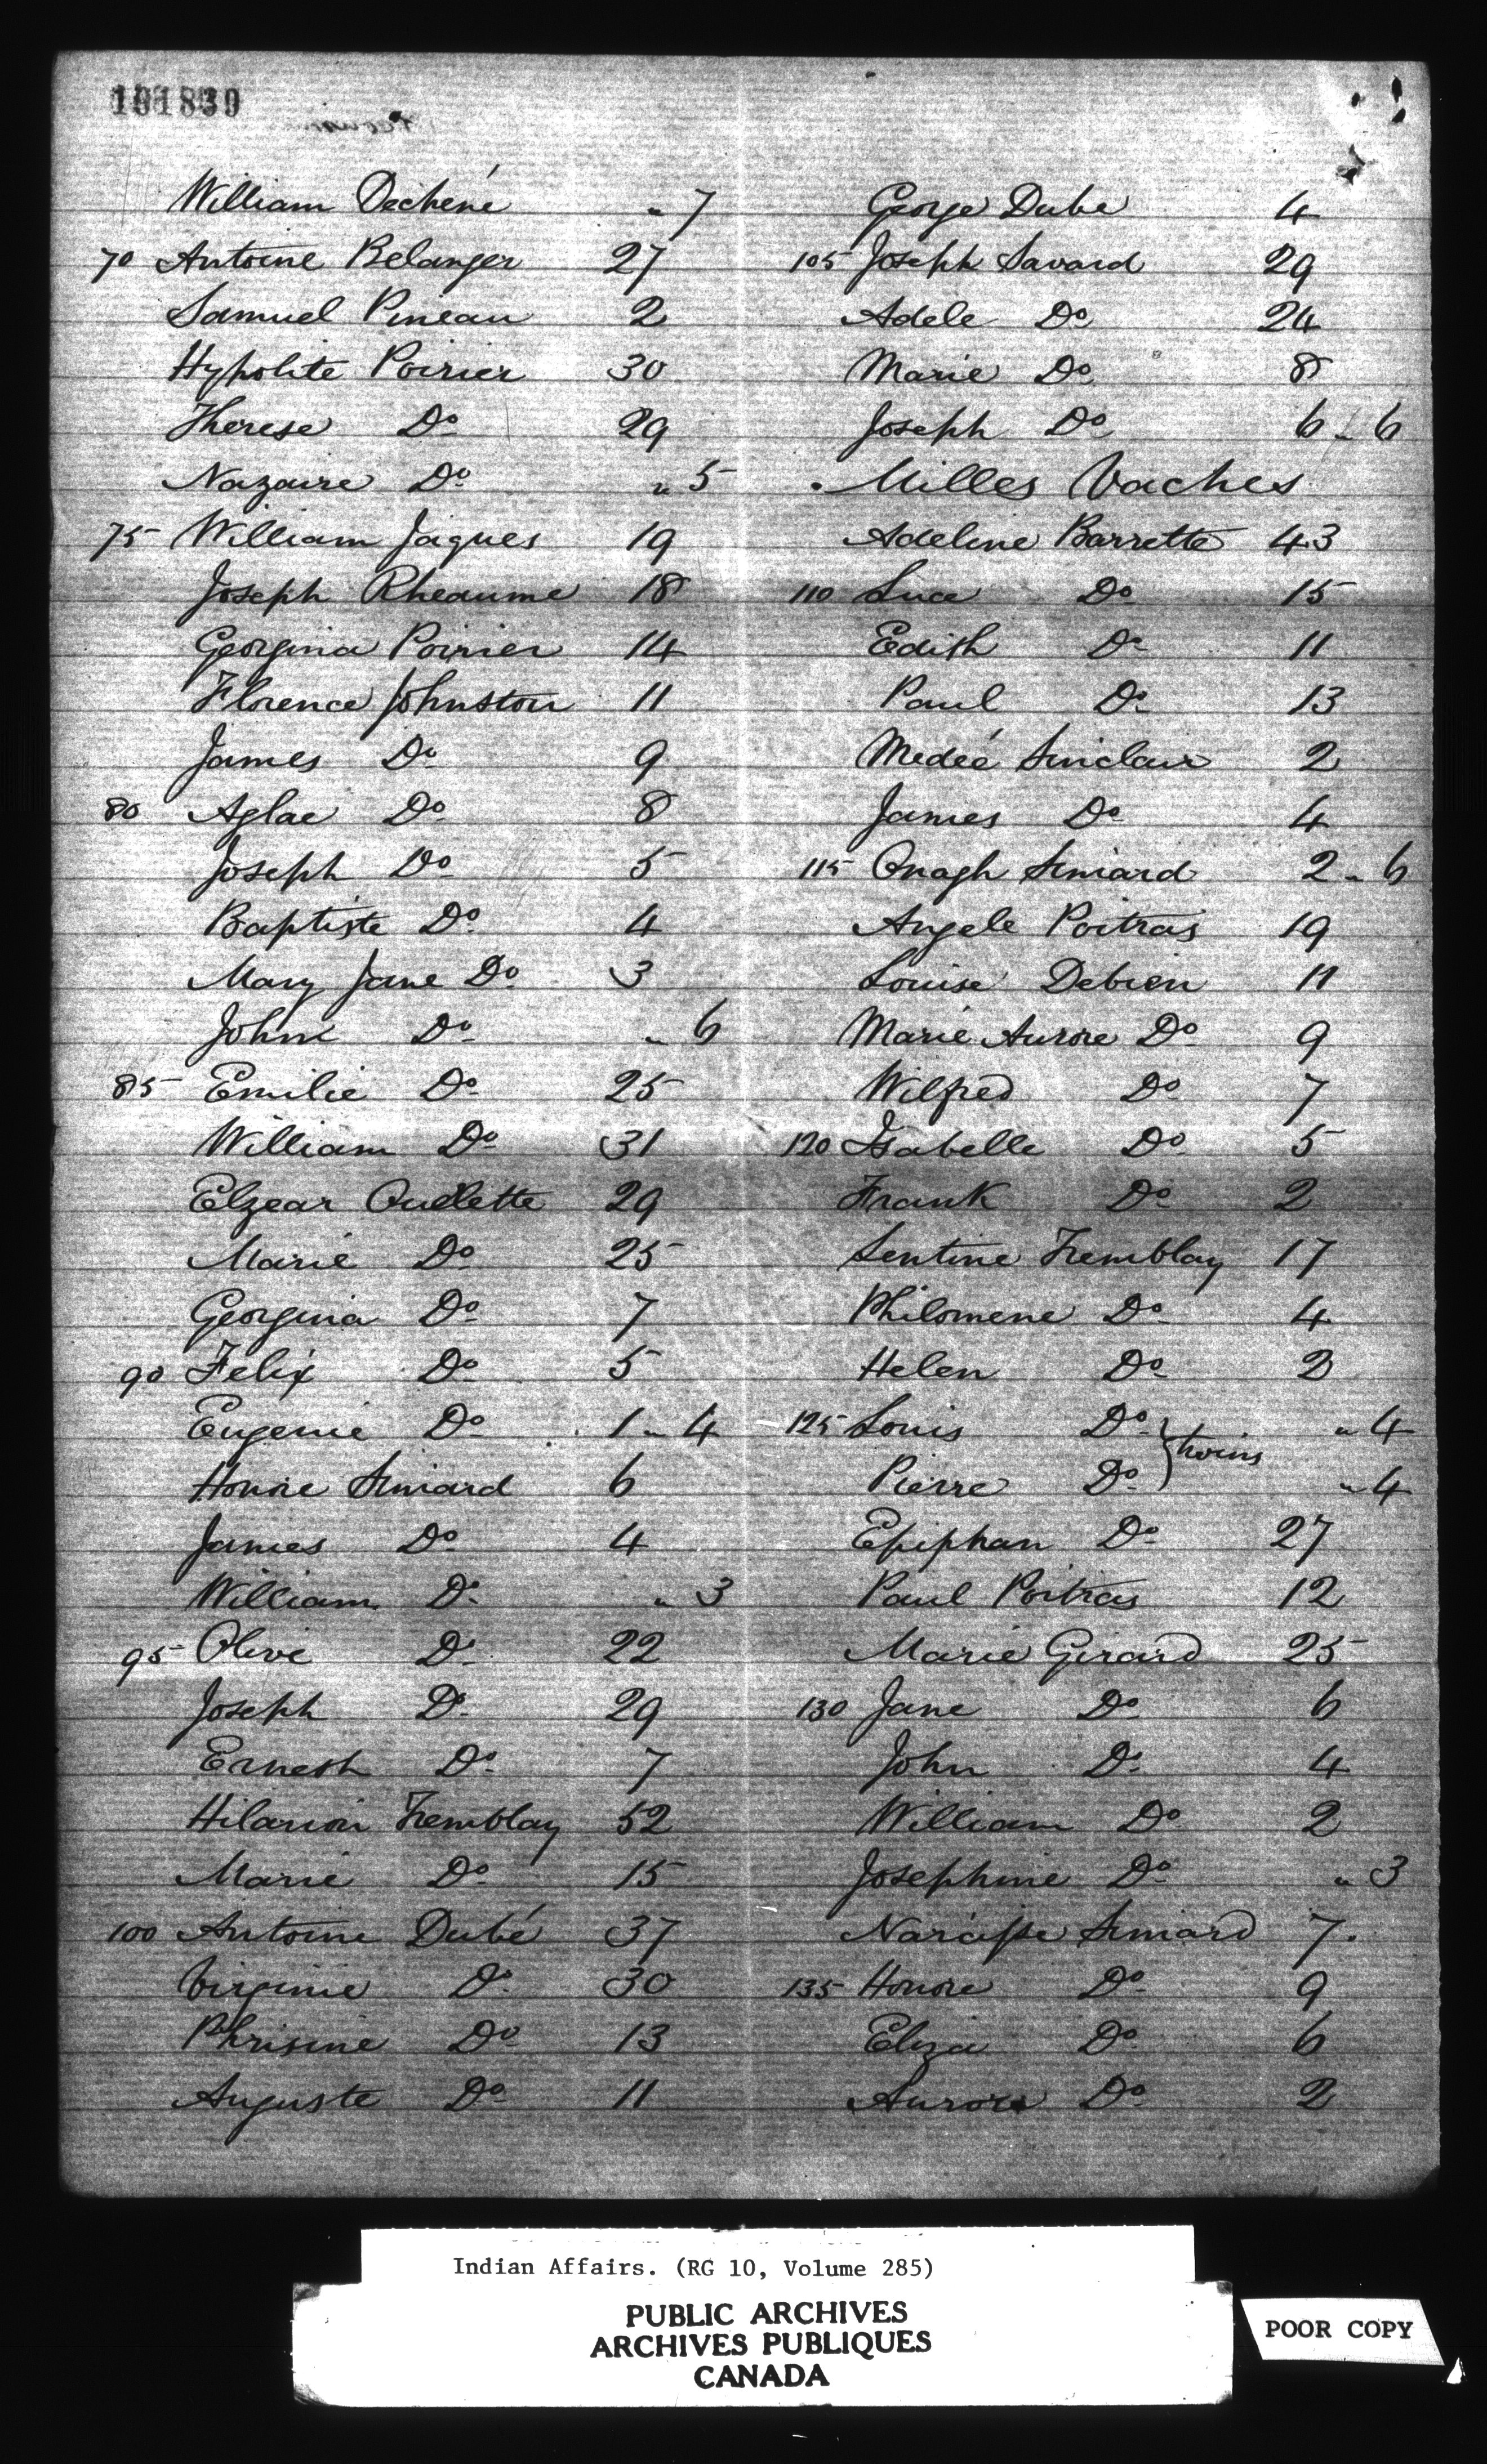 191830
William Dechéne " 7
70 Antoine Belanger 27
Samuel Pineau 2
Hypolite Poirier 30
Therese Do 29
Nazaire Do " 5
75 William Jaques 19
Joseph Rheaume 18
Georgina Poirier 14
Florence Johnston 11
James Do 9
80 Aglae Do 8
Joseph Do 5
Baptiste Do 4
Mary Jane Do 3
John Do " 6
85 Emilie Do 25
William Do 31
Elzear Ouellette 29
Marie Do 25
Georgina Do 7
90 Felix Do 5
Eugenie Do 1 " 4
Honore Simard 6
James Do 4
William Do " 3
95 Olive Do 22
Joseph Do 29
Ernest Do 7
Hilarion Tremblay 52
Marie Do 15
100 Antoine Dubé 37
Virginie Do 30
Phrisine Do 13
Auguste Do 11
George Dube 4
105 Joseph Savard 29
Adele Do 24
Marie Do 8
Joseph Do 6 " 6
Milles Vaches
Adeline Barrette 43
110 Luce Do 15
Edith Do 11
Paul Do 13
Medeé Sinclair 2
James Do 4
115 Onagh Simard 2 " 6
Angele Poitras 19
Louise Debien 11
Marie Aurore Do 9
Wilfred Do 7
120 Isabelle Do 5
Frank Do 2
Sentine Tremblay 17
Philomene Do 4
Helen Do 2
125 Louis Do } twins " 4
Pierre Do " 4
Epiphan Do 27
Paul Poitras 12
Marie Girard 25
130 Jane Do 6
John Do 4
William Do 2
Josephine Do " 3
Narcisse Simard 7
135 Honore Do 9
Eliza Do 6
Aurore Do 2
Indian Affairs. (RG 10, Volume 285)
PUBLIC ARCHIVES
ARCHIVES PUBLIQUES
CANADA
POOR COPY